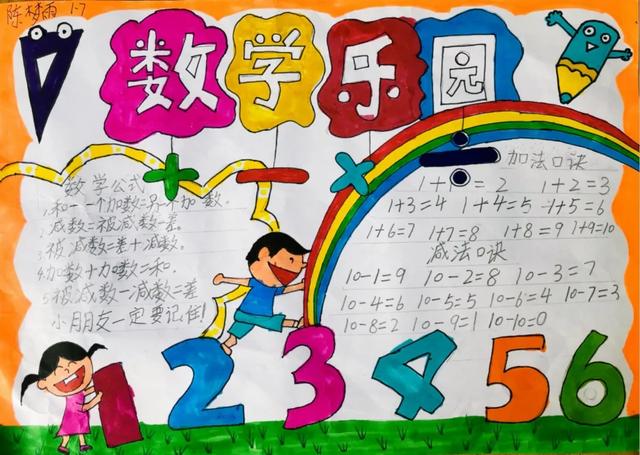 陈梦雨 1-7
数学乐园
+ − × ÷
数学公式
1.和-一个加数=另一个加数。
2.减数=被减数-差。
3.被减数=差+减数。
4.加数+加数=和。
5.被减数-减数=差
小朋友一定要记住!
加法口诀
1+1=2 1+2=3
1+3=4 1+4=5 1+5=6
1+6=7 1+7=8 1+8=9 1+9=10
减法口诀
10-1=9 10-2=8 10-3=7
10-4=6 10-5=5 10-6=4 10-7=3
10-8=2 10-9=1 10-10=0
1 2 3 4 5 6